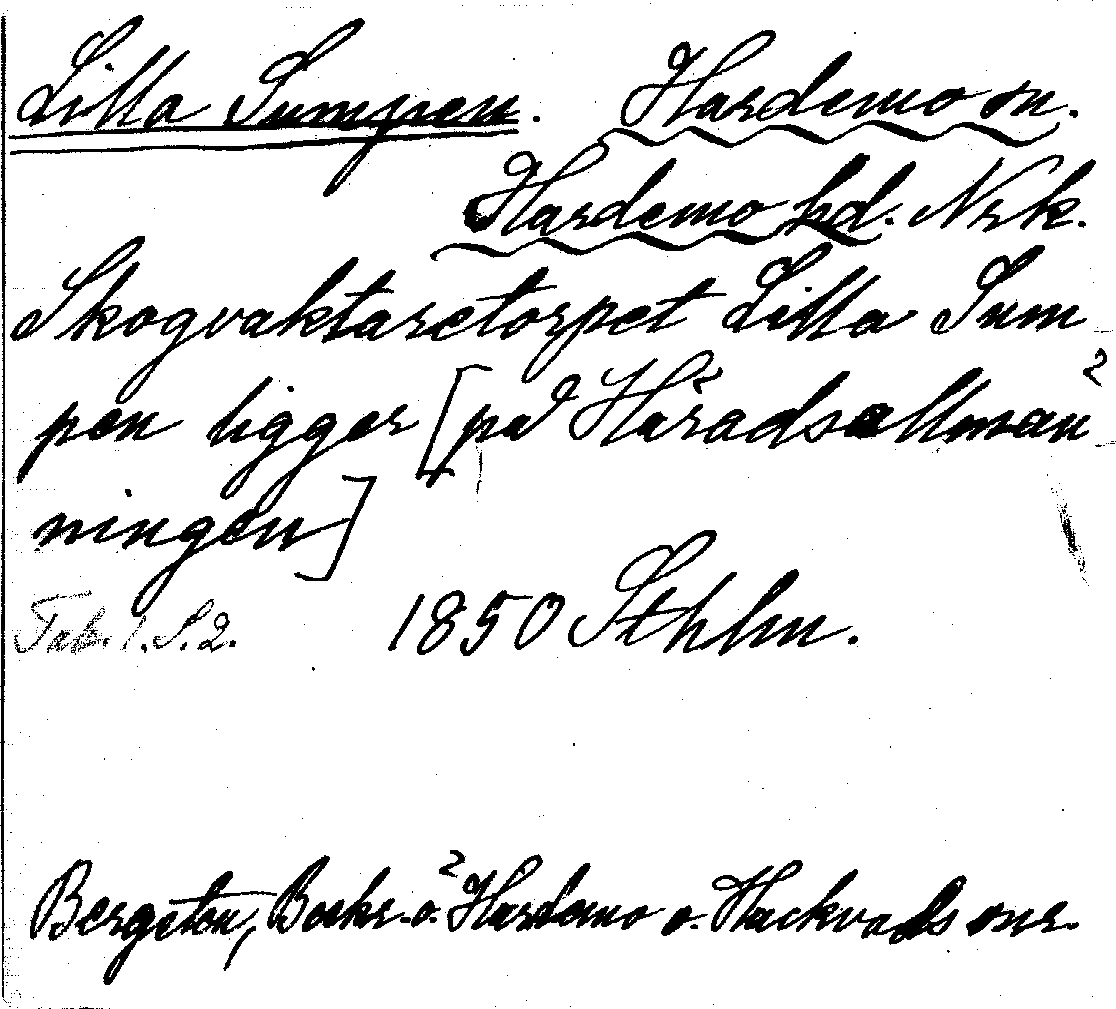 Lilla Sumpen. Hardemo sn.
Hardemo hd. Nrk.
Skogvaktaretorpet Lilla Sum
pen ligger [på Häradsallmän 2
ningen]
Tab. 1. S. 2. 1850 Sthlm.
Bergston, Beskr. ö. 2 Hardemo o. Hackvads snr.